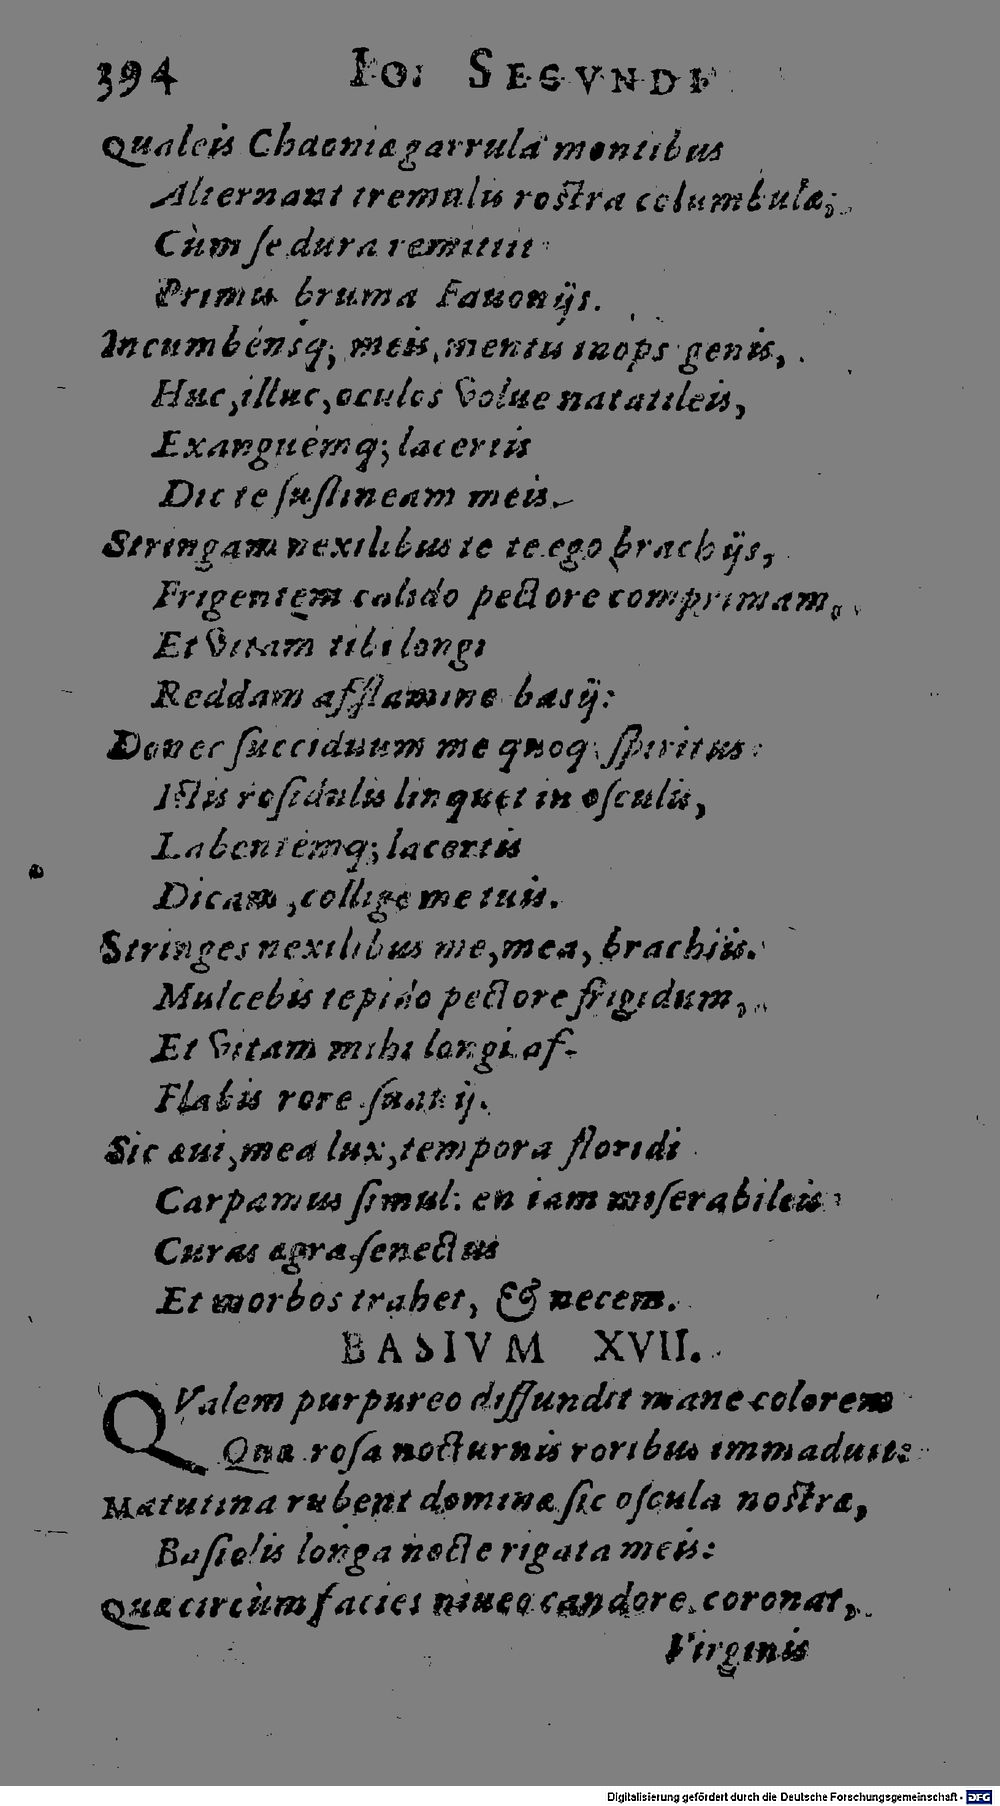 394 Io: SECVNDI
Qualeis Chaoniæ garrula motibus
Alternant tremulis rostra columbulæ;
Cùm se dura remittit
Primis bruma Fauonijs.
Incumbénsq; meis, mentis inops genis,
Huc, illuc, oculos volue natatileis,
Exanguémq; lacertis
Dic te sustineam meis.
Stringam nexilibus te te ego brachijs,
Frigentem calido pectore comprimam,
Et vitam tibi longi
Reddam afflamine basij:
Donec succiduum me quoq; spiritus
Istis rosidulis linquet in osculis,
Labentémq; lacertis
Dicam, collige me tuis.
Stringes nexilibus me, mea, brachiis.
Mulcebis tepido pectore frigidum,
Et vitam mihi longi af-
Flabis rore suauij.
Sic æui, mea lux, tempora floridi
Carpamus simul: en iam miserabileis
Curas ægra senectus
Et morbos trahet, & necem.
BASIVM XVII.
QValem purpureo diffundit mane colorem
Quæ rosa nocturnis roribus immaduit:
Matutina rubent dominæ sic oscula nostræ,
Basiolis longa nocte rigata meis:
Quæ circùm facies niueo candore coronat,
Virginis
Digitalisierung gefördert durch die Deutsche Forschungsgemeinschaft - DFG